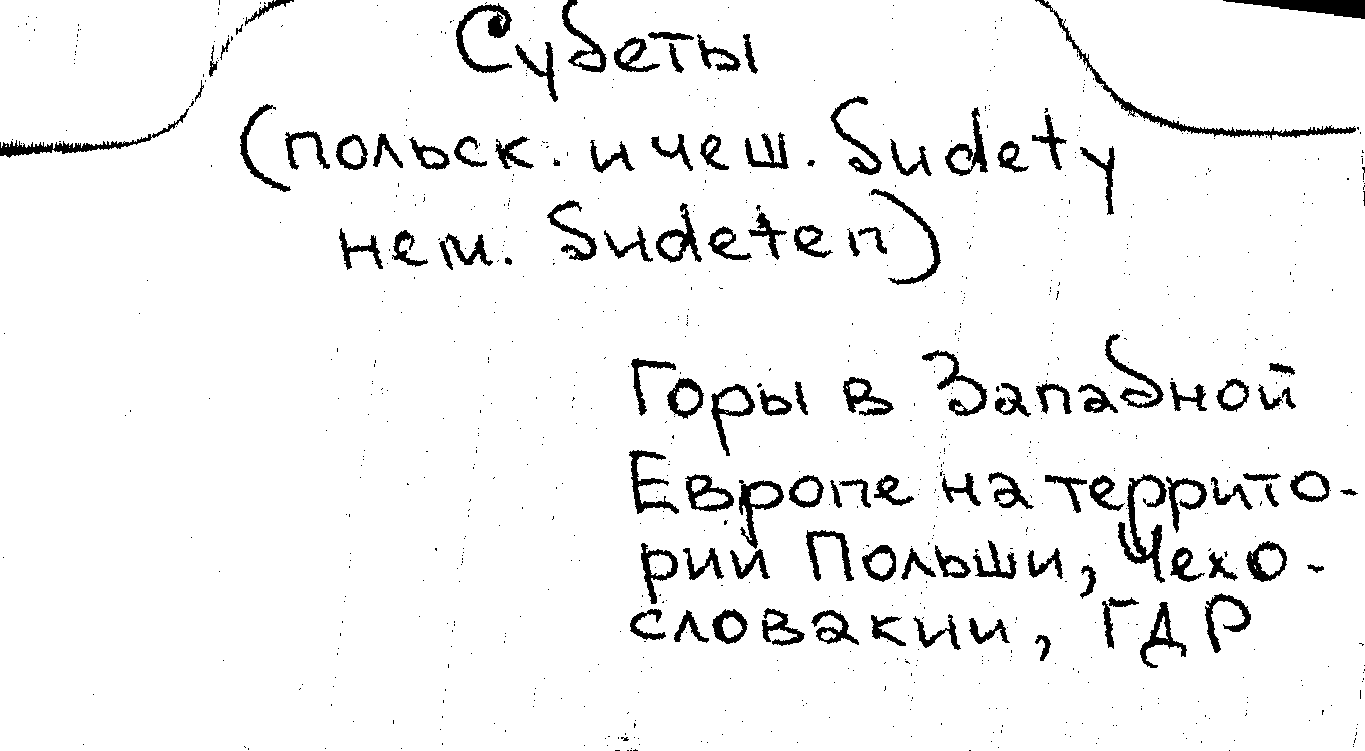 Судеты
(польск. и чеш. Sudety
нем. Sudeten)
Горы в Западной
Европе на террито-
рии Польши, Чехо-
словакии, ГДР